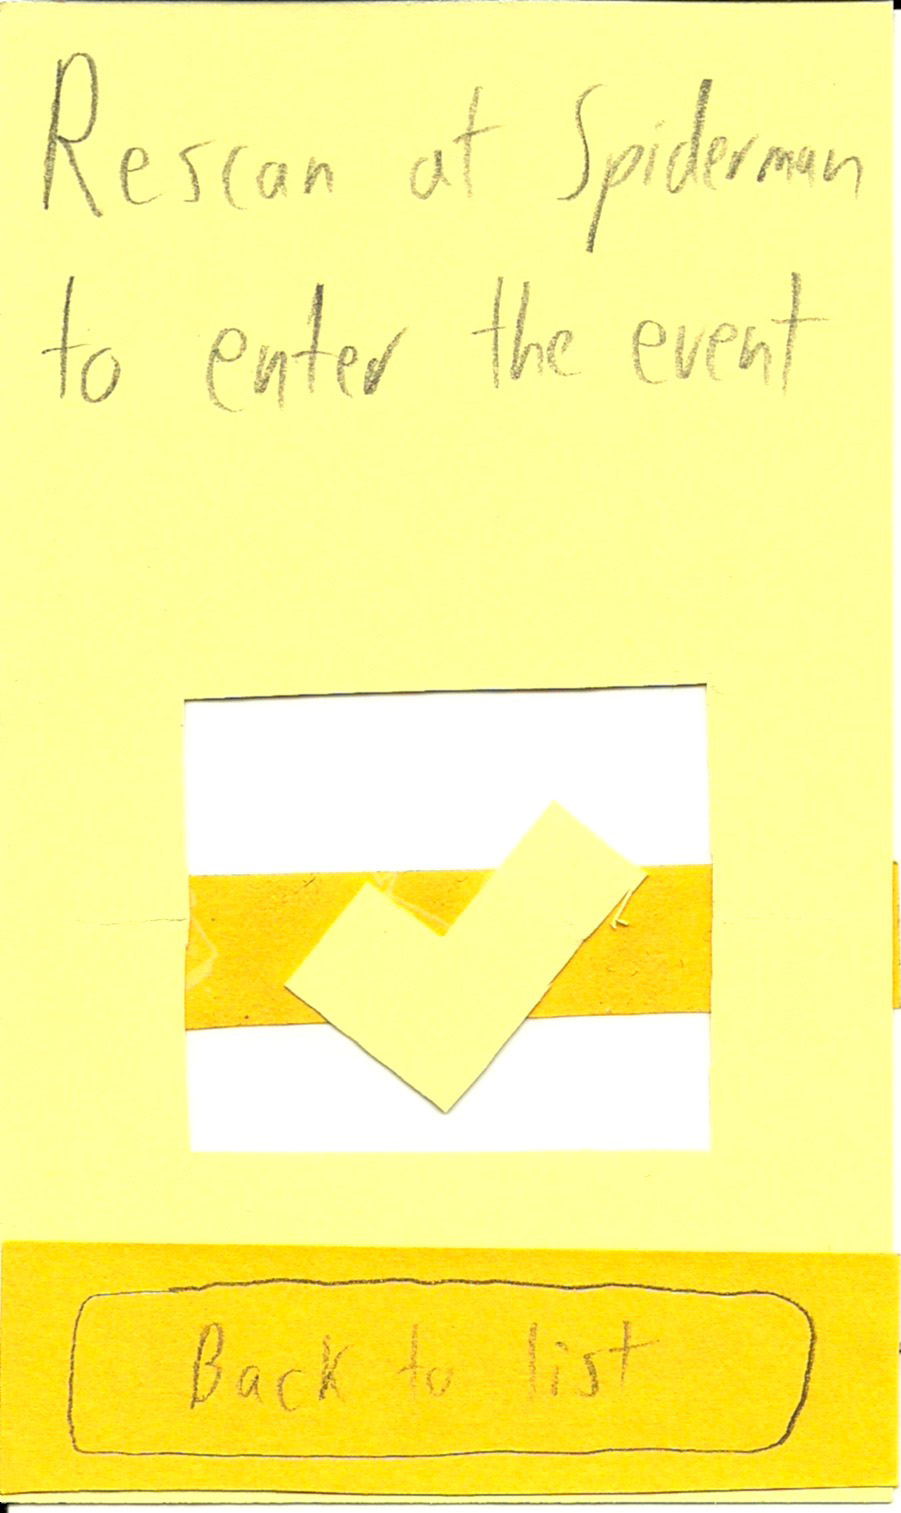 Rescan at Spiderman
to enter the event
Back to list